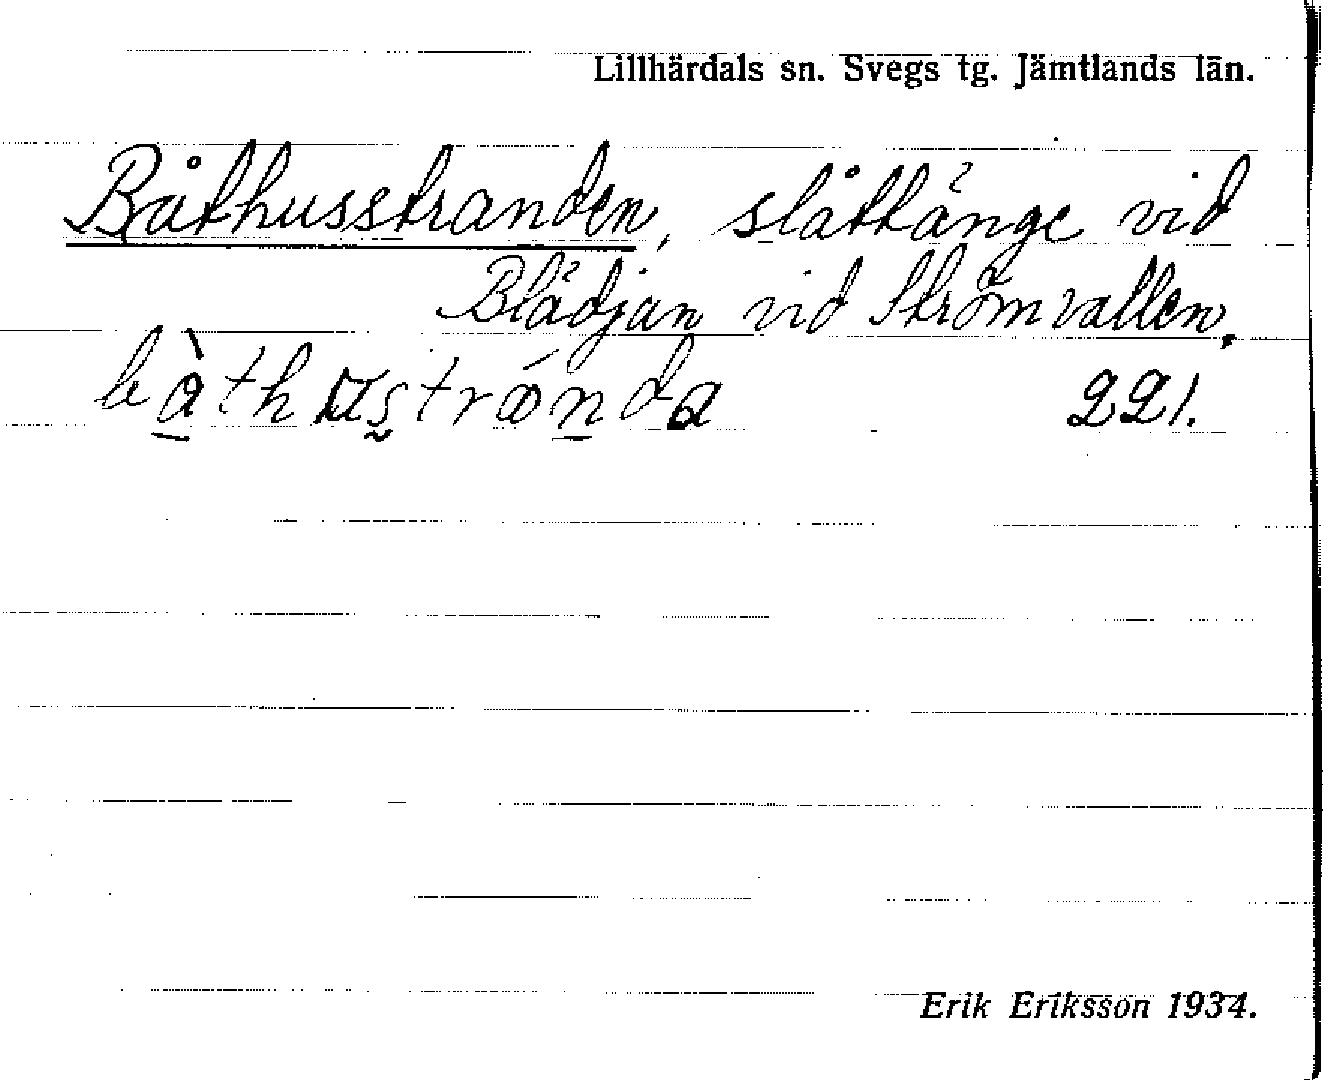 Lillhärdals sn. Svegs tg. Jämtlands län.
Båthusstranden, slåttänge vid
Blädjan vid Strömvallen.
221.
Erik Eriksson 1934.